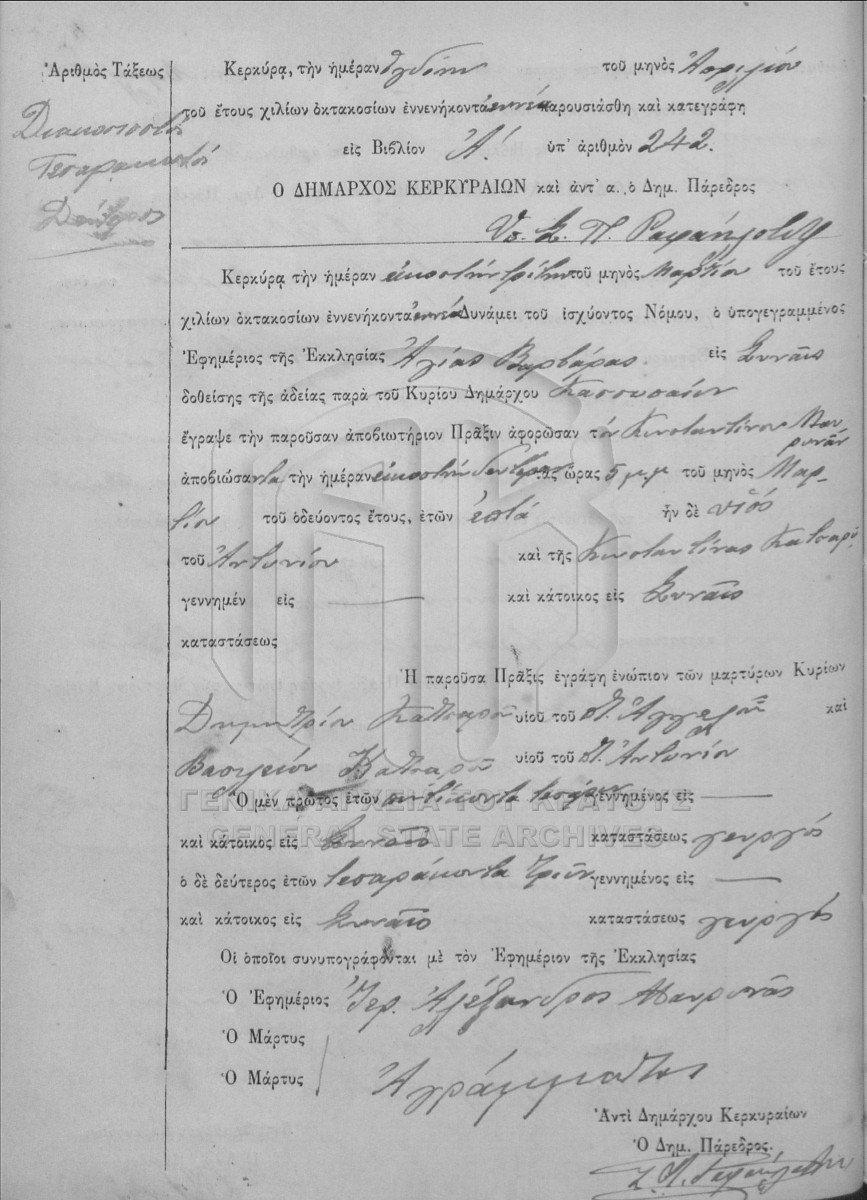 Ἀριθμὸς Τάξεως
Διακοσιοστὴ
Τεσαρακοστὴ
Δεύτερα
Κερκύρᾳ, τὴν ἡμέραν ὀγδόην τοῦ μηνὸς Ἀπριλίου
τοῦ ἔτους χιλίων ὀκτακοσίων ἐννενήκοντα ἐννέα παρουσιάσθη καὶ κατεγράφη
εἰς Βιβλίον Α΄. ὑπ' ἀριθμὸν 242.
Ὁ ΔΗΜΑΡΧΟΣ ΚΕΡΚΥΡΑΙΩΝ καὶ ἀντ' α. ὁ Δημ. Πάρεδρος
Κερκύρᾳ τὴν ἡμέραν εἰκοστὴν τρίτην τοῦ μηνὸς Μαρτίου τοῦ ἔτους
χιλίων ὀκτακοσίων ἐννενήκοντα ἐννέα Δυνάμει τοῦ ἰσχύοντος Νόμου, ὁ ὑπογεγραμμένος
Ἐφημέριος τῆς Ἐκκλησίας Ἁγίας Βαρβάρας εἰς
δοθείσης τῆς ἀδείας παρὰ τοῦ Κυρίου Δημάρχου Κασσωπαίων
ἔγραψε τὴν παροῦσαν ἀποβιωτήριον Πρᾶξιν ἀφορῶσαν τὸν Κωνσταντῖνον Μαυ
ρωνᾶν
ἀποβιώσαντα τὴν ἡμέραν εἰκοστὴν δευτέραν τὰς ὥρας 5 μ.μ τοῦ μηνὸς Μαρ-
τίου τοῦ ὁδεύοντος ἔτους, ἐτῶν ἑπτά ἦν δὲ υἱὸς
τοῦ Ἀντωνίου καὶ τῆς Κωνσταντίνας Κατσαρ
γεννημέν εἰς — καὶ κάτοικος εἰς
καταστάσεως
Ἡ παροῦσα Πρᾶξις ἐγράφη ἐνώπιον τῶν μαρτύρων Κυρίων
Δημητρίου Κατσαροῦ υἱοῦ τοῦ Ἀγγελοῦ καὶ
Βασιλείου Κατσαροῦ υἱοῦ τοῦ Ἀντωνίου
ΓΕΝΙΚΑ ΑΡΧΕΙΑ ΤΟΥ ΚΡΑΤΟΥΣ
GENERAL STATE ARCHIVES
Ὁ μὲν πρῶτος ἐτῶν γεννημένος εἰς —
καὶ κάτοικος εἰς καταστάσεως γεωργός
ὁ δὲ δεύτερος ἐτῶν τεσαράκοντα τριῶν γεννημένος εἰς —
καὶ κάτοικος εἰς καταστάσεως γεωργός
Οἱ ὁποῖοι συνυπογράφονται μὲ τὸν Ἐφημέριον τῆς Ἐκκλησίας
Ὁ Ἐφημέριος Ἱερ. Ἀλέξανδρος Μαυρωνᾶς
Ὁ Μάρτυς
Ὁ Μάρτυς Ἀγράμματος
Ἀντὶ Δημάρχου Κερκυραίων
Ὁ Δημ. Πάρεδρος.